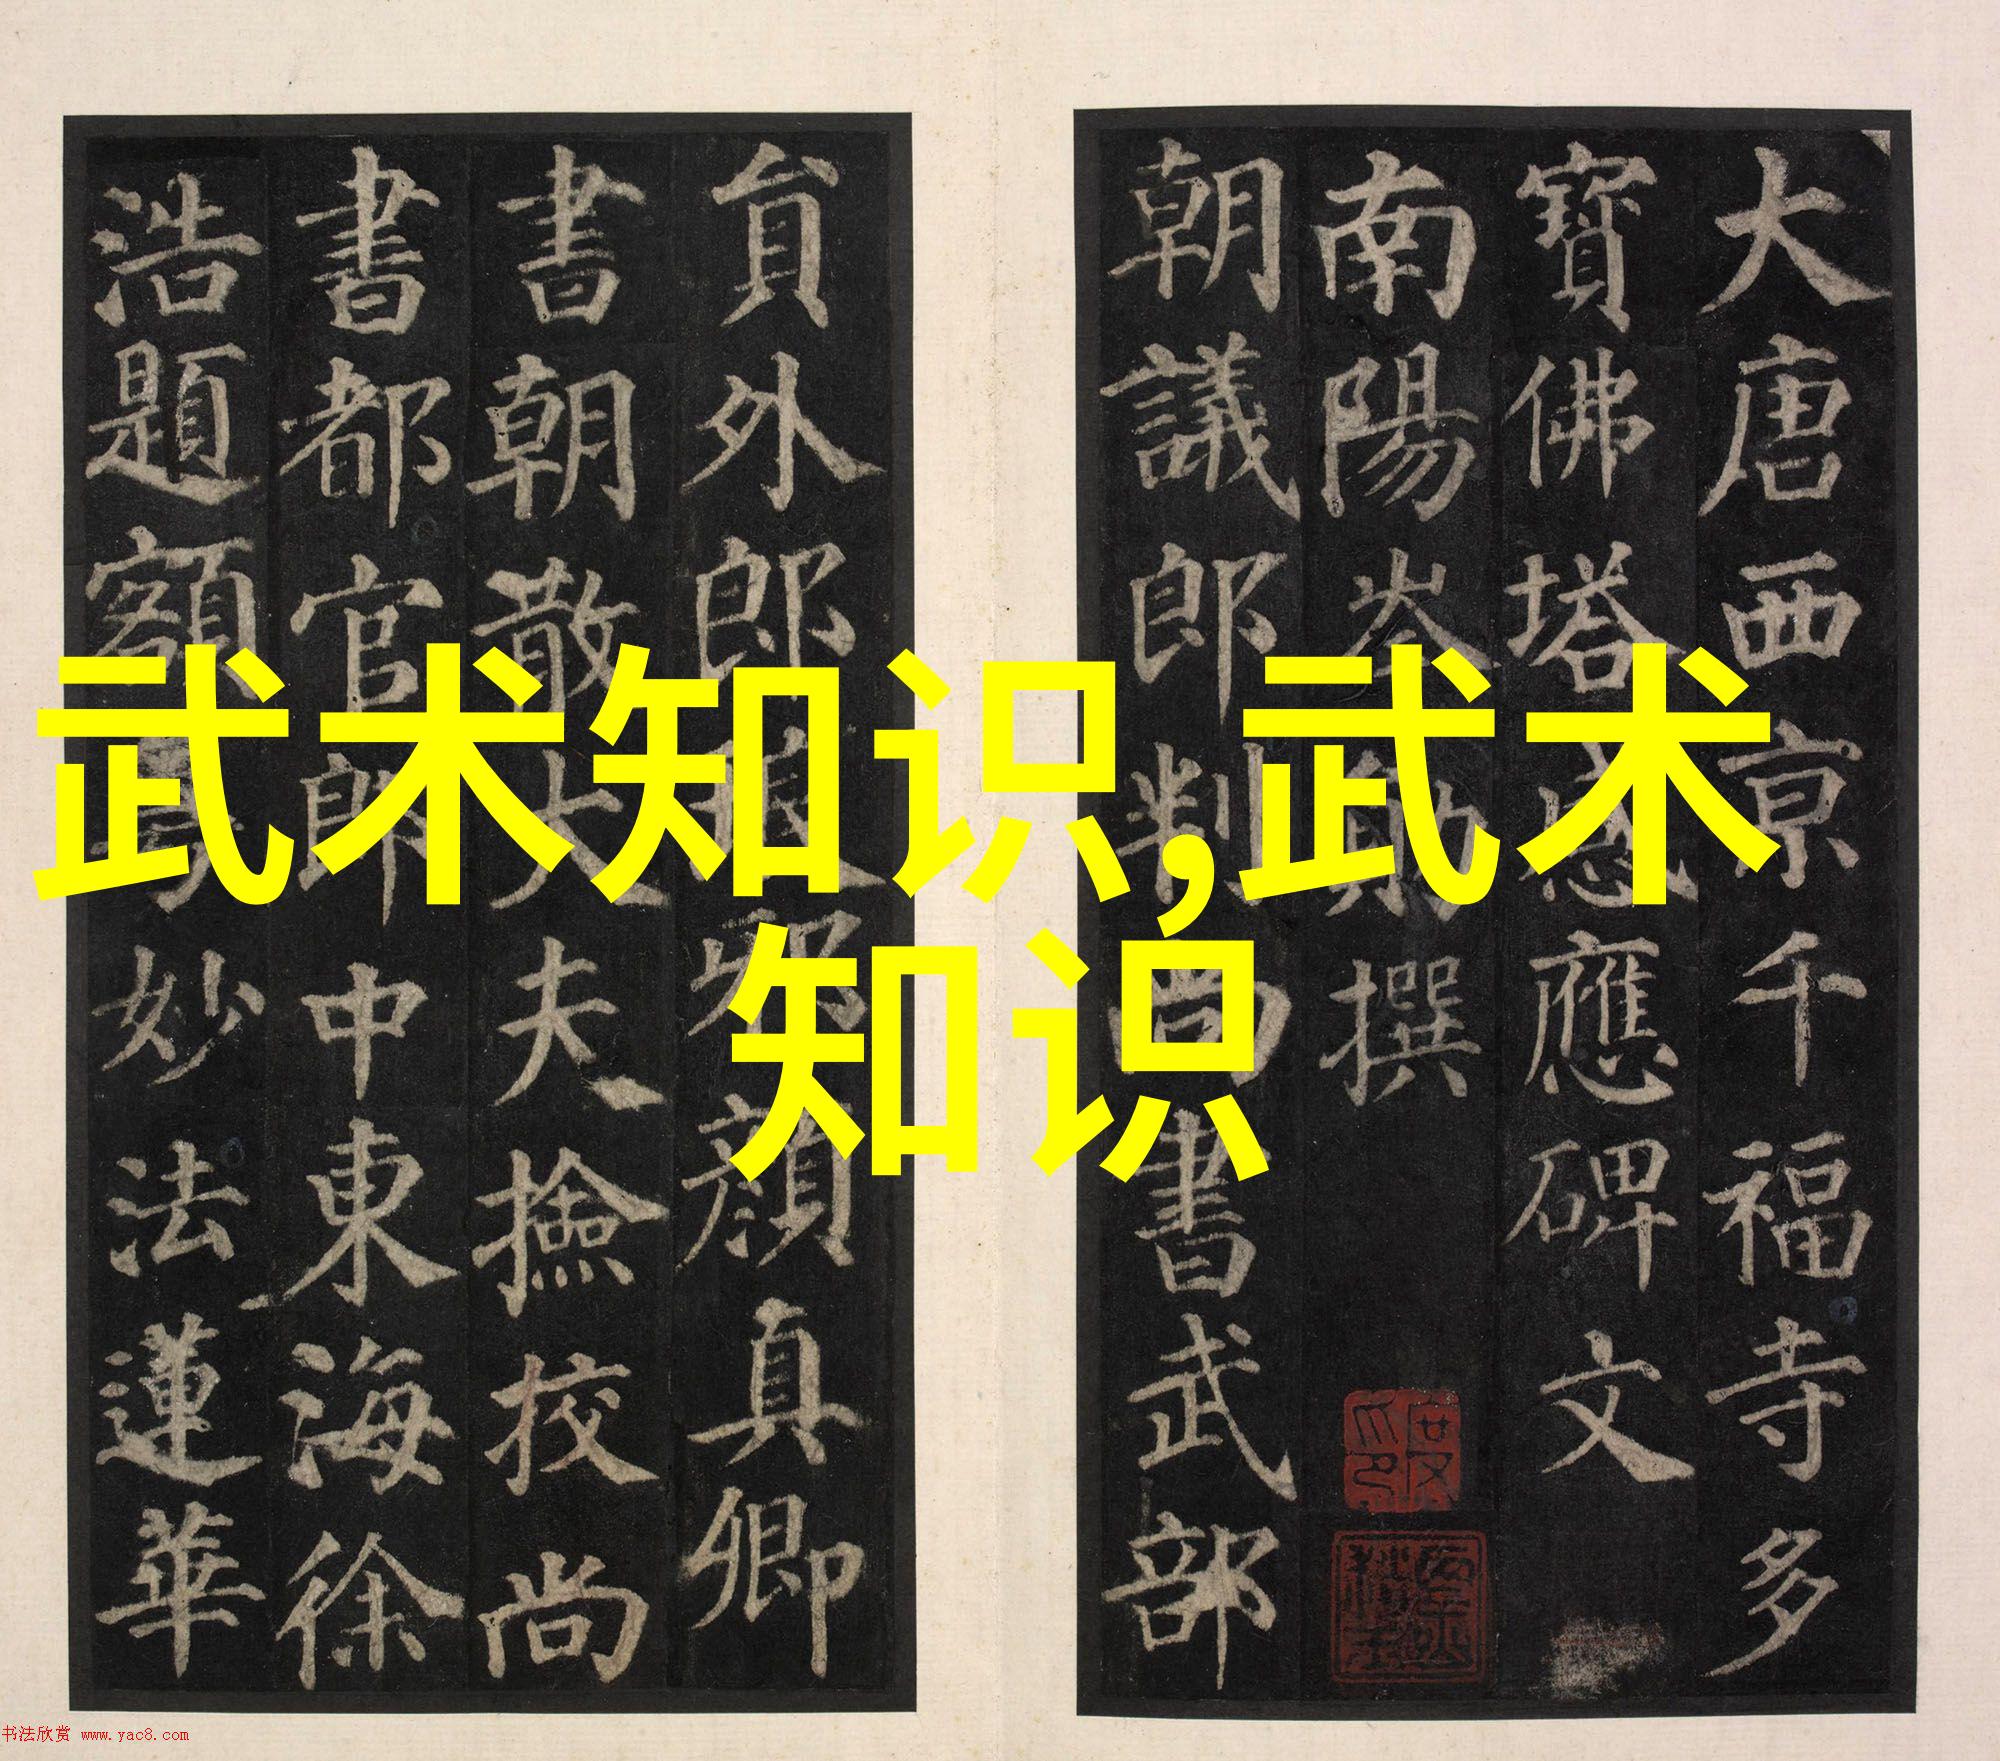 武术知识,武术
知识
大唐西亰千福寺多
寶佛塔感應碑文
南陽岑勛撰
朝議郎判尚書武部
貟外郎琅邪顏真卿
書朝散大夫撿挍尚
書都官郎中東海徐
浩題額粤妙法蓮華
书法欣赏 www.yac8.com